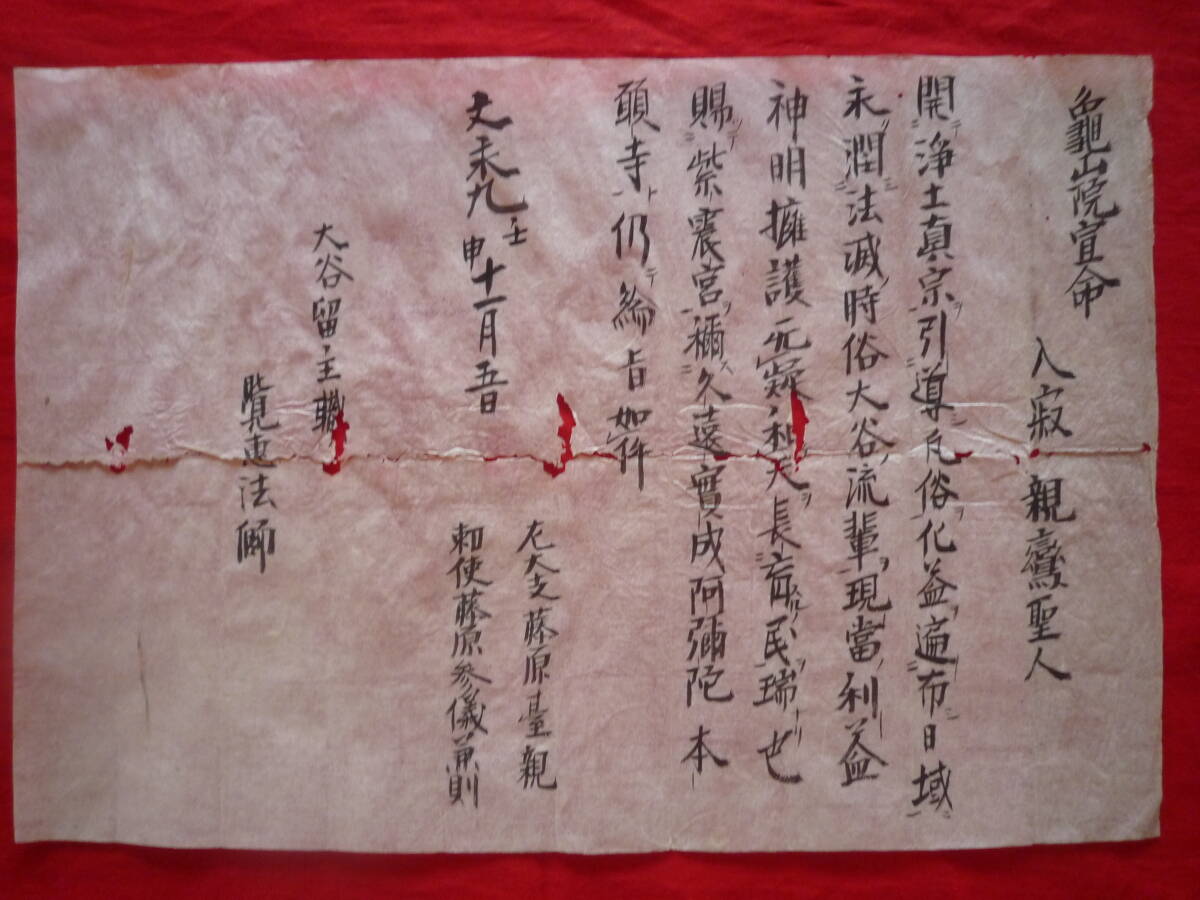 龜山院宣命
入寂 親鸞聖人
開浄土真宗引導凡俗化益遍布日域
永潤法滅時俗大谷流輩現當利益
神明擁護无疑和天長育民瑞也
賜紫震宮禰久遠實成阿彌陀本
願寺仍綸旨如件
左大支藤原臺親
文永九壬申十一月五日
勅使藤原参儀兼則
大谷留主職
覧恵法師